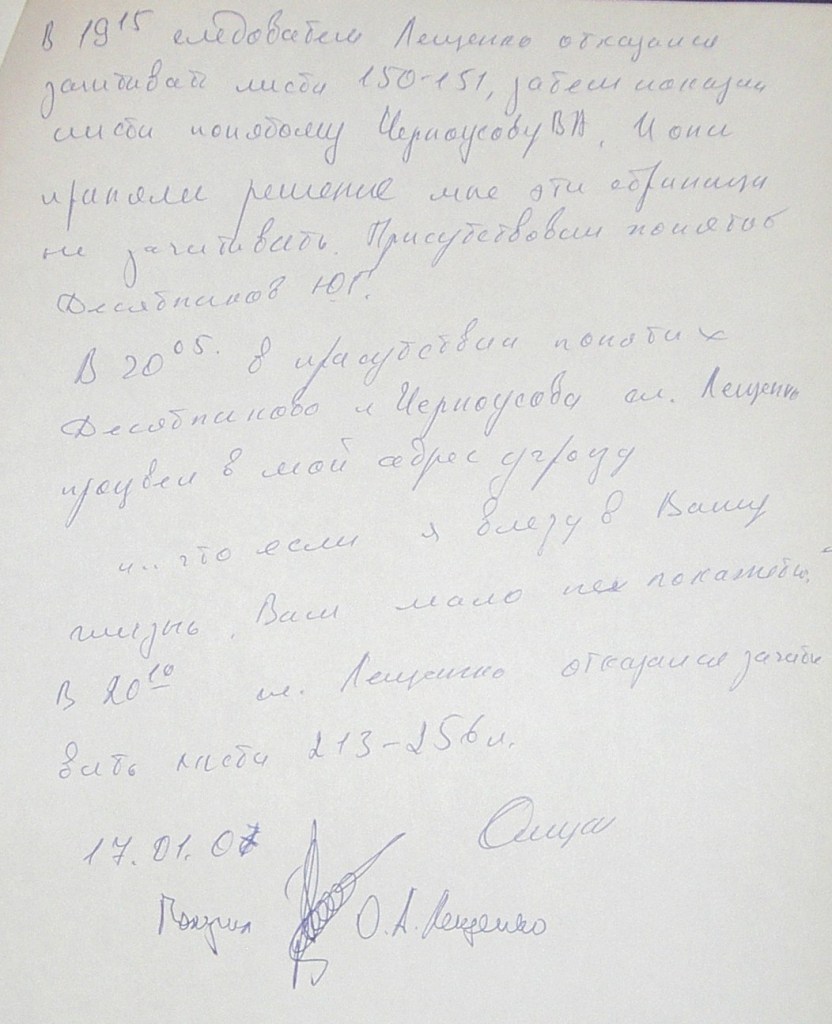 В 19¹⁵ следователь Лещенко отказался
зачитывать листы 150-151, затем показал
листы понятому Черноусову В А. И они
приняли решение мне эти страницы
не зачитывать. Присутствовал понятой
Десятников Ю.Г.
В 20⁰⁵. в присутствии понятых
Десятникова и Черноусова сл. Лещенко
произвел в мой адрес угрозу
"... что если я влезу в Вашу
жизнь, Вам мало не покажеться."
В 20¹⁰ сл. Лещенко отказался зачиты
вать листы 213-256 л.
17.01.07
Получил О.А. Лещенко